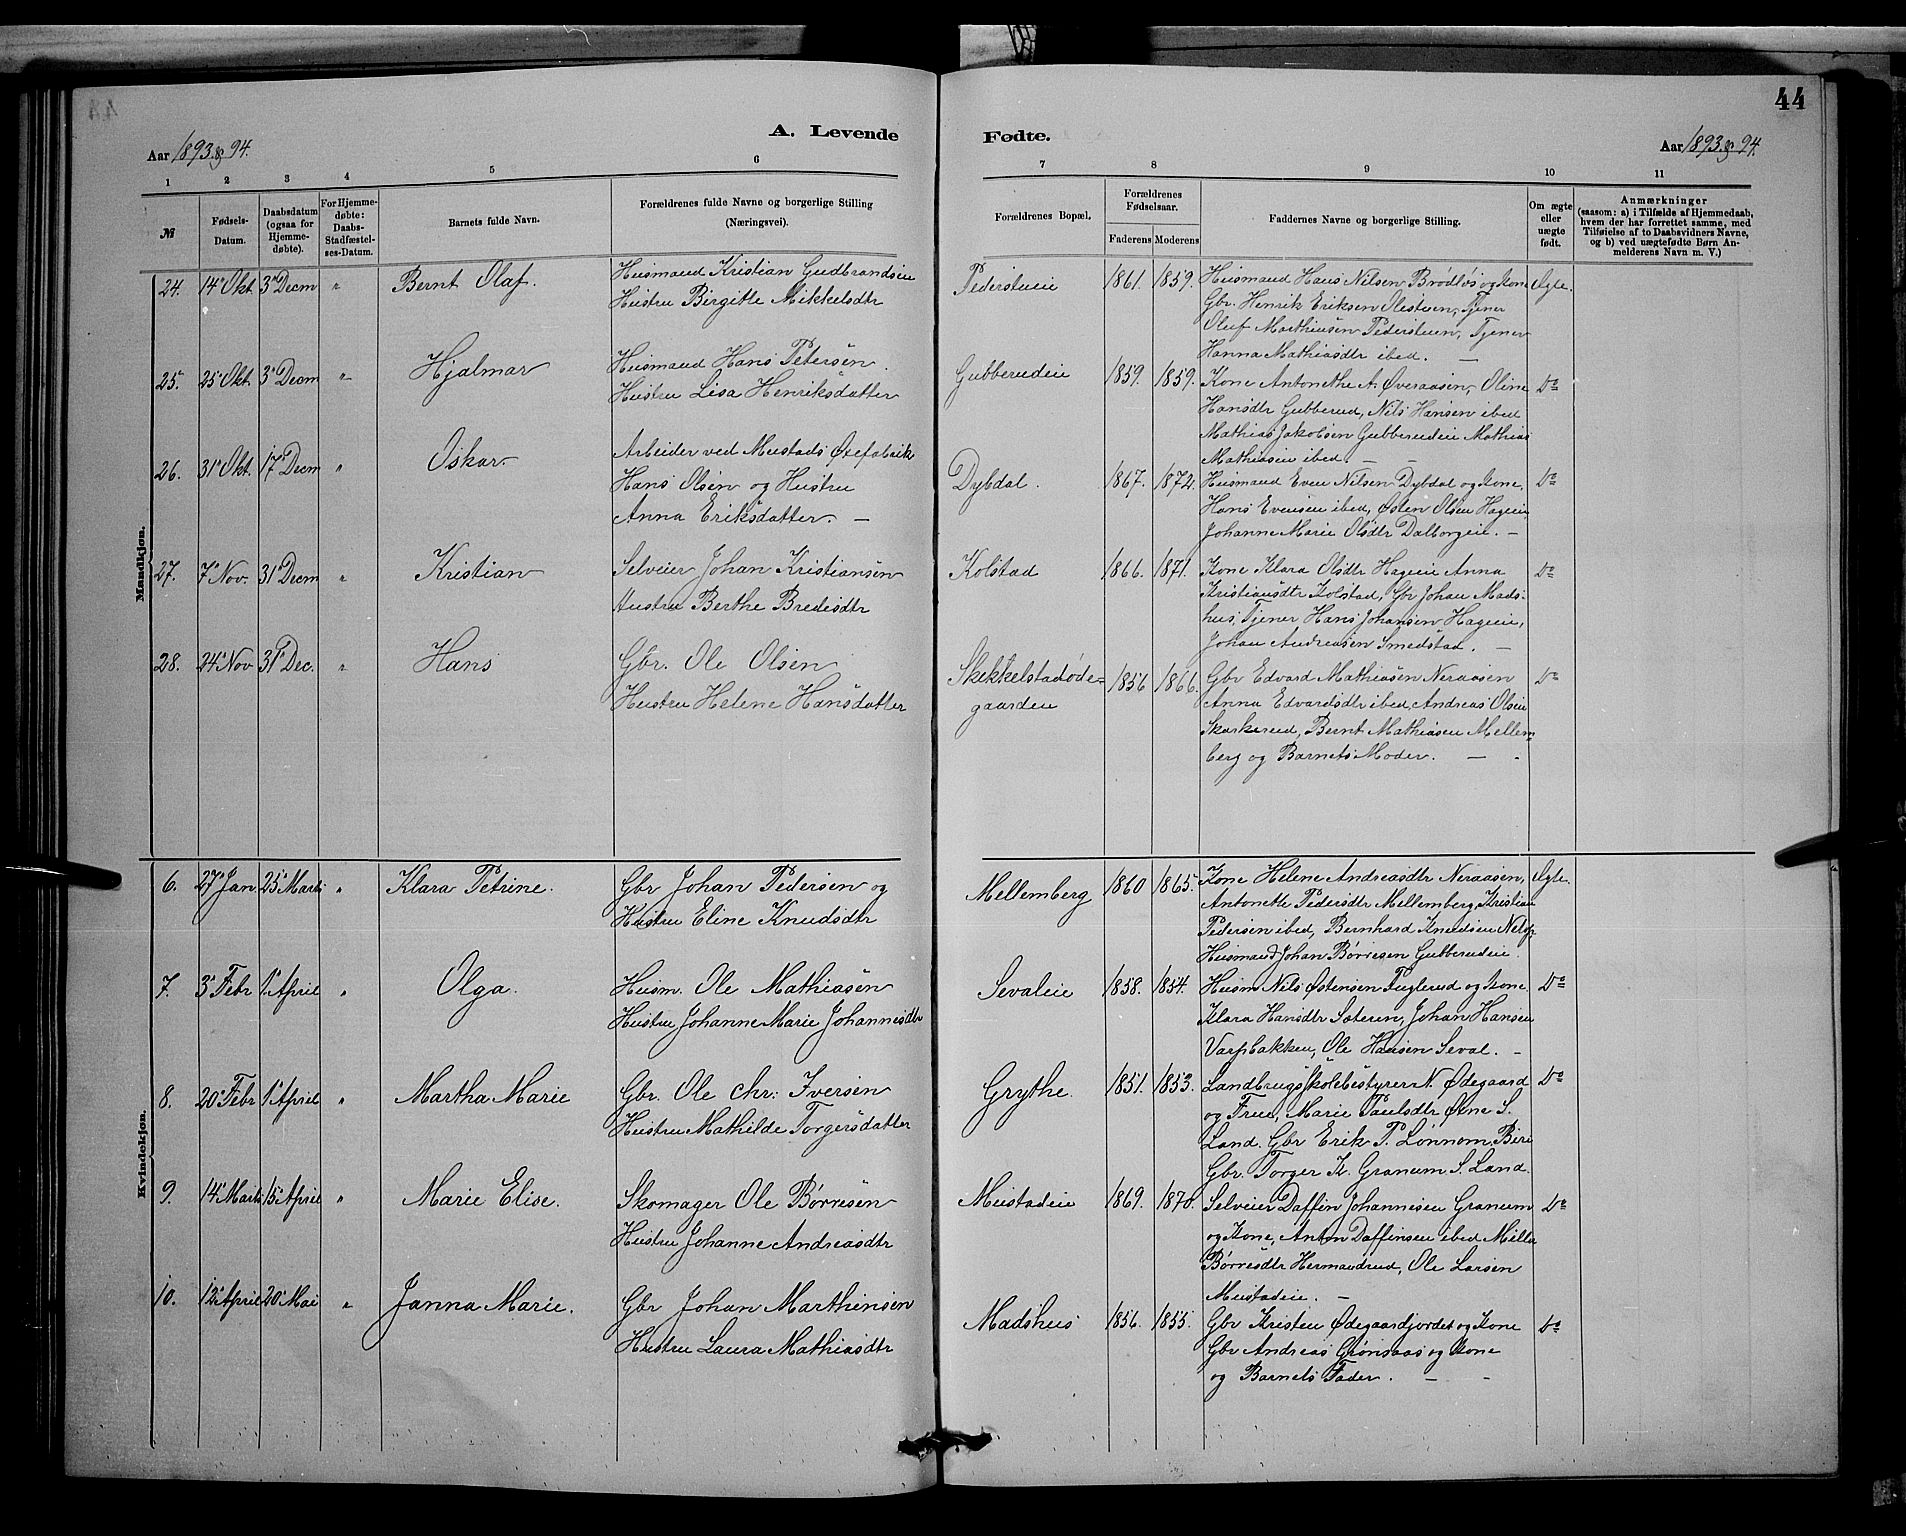 44
A. Levende Fødte.
Aar 1893 & 94. Aar 1893 & 94.
1 2 3 4 5 6 7 8 9 10 11
№
Fødsels-
Datum.
Daabsdatum
(ogsaa for
Hjemme-
døbte).
For Hjemme-
døbte:
Daabs-
Stadfæstel-
ses-Datum.
Barnets fulde Navn.
Forældrenes fulde Navne og borgerlige Stilling
(Næringsvei).
Forældrenes Bopæl.
Forældrenes
Fødselsaar.
Faderens Moderens
Faddernes Navne og borgerlige Stilling.
Om ægte
eller
uægte
født.
Anmærkninger
(saasom: a) i Tilfælde af Hjemmedaab,
hvem der har forrettet samme, med
Tilføielse af to Daabsvidners Navne,
og b) ved uægtefødte Børn An-
melderens Navn m. V.)
Mandkjøn.
24. 14 Okt. 3 Decm " Bernt Olaf.
Husmand Kristian Gudbrandsen
Hustru Birgitte Mikkelsdtr
Pederstueie 1861. 1859.
Husmand Hans Nilsen Brødløs og Kone
Gbr. Henrik Eriksen Olestuen, Tjener
Oluf Mathiasen Pederstuen, Tjener
Hanna Mathiasdtr ibed. —
Ægte.
25. 25 Okt. 3 Decm " Hjalmar
Husmand Hans Petersen.
Hustru Lisa Henriksdatter
Gubberudeie 1859. 1859.
Kone Antonethe A. Øveraasen, Oline
Hansdtr Gubberud, Nils Hansen ibed
Mathias Jakobsen Gubberudeie Mathias
Mathiasen ibed. — —
Do
26. 31 Okt. 17 Decm " Oskar.
Arbeider ved Mustads Øxefabrik
Hans Olsen og Hustru
Anna Eriksdatter. —
Dybdal. 1867. 1872.
Husmand Even Nilsen Dybdal og Kone,
Hans Evensen ibed, Østen Olsen Hageie,
Johanne Marie Olsdtr Dalborgeie. —
Do
27. 7 Nov. 31 Decm " Kristian
Selveier Johan Kristiansen
Hustru Berthe Bredesdtr
Kolstad 1866. 1871.
Kone Klara Olsdtr Hageie Anna
Kristiansdtr Kolstad, Gbr Johan Mads-
hus, Tjener Hans Johansen Hageie,
Johan Andreasen Smedstad. —
Do
28. 24 Nov 31 Dec. " Hans
Gbr. Ole Olsen
Hustru Helene Hansdatter
Skikkelstadøde-
gaarden 1856 1866.
Gbr Edvard Mathiasen Neraasen
Anna Edvardsdtr ibed, Andreas Olsen
Skarkerud, Bernt Mathiasen Mellem-
berg og Barnets Moder. — .
Do
Kvindekjøn.
6. 27 Jan 25 Marts " Klara Petrine.
Gbr Johan Pedersen og
Hustru Eline Knudsdtr
Mellemberg 1860 1865.
Kone Helene Andreasdtr Neraasen,
Antonette Pedersdtr Mellemberg, Kristian
Pedersen ibed, Bernhard Knudsen
Husmand Johan Børresen Gubberudeie.
Ægte.
7. 3 Febr 1 April " Olga.
Husm. Ole Mathiasen
Hustru Johanne Marie Johannesdtr
Sevaleie 1858. 1854.
Husm Nils Østensen Fuglerud og Kone.
Klara Hansdtr Sæteren, Johan Hansen
Varpbakken, Ole Hansen Seval. —
Do
8. 20 Febr 1 April " Martha Marie
Gbr. Ole Chr: Iversen
Hustru Mathilde Torgersdatter
Grythe. 1851. 1853.
Landbrugsskolebestyrer N. Ødegaard
og Frue, Marie Paulsdtr Øxne S.
Land. Gbr Erik P. Lønnom, Biri
Gbr. Torger K. Granum S. Land.
Do
9. 14 Marts 15 April " Marie Elise.
Skomager Ole Børresen
Hustru Johanne Andreasdtr
Mustadeie 1869. 1870.
Selveier Daffin Johannesen Granum
og Kone, Anton Daffinsen ibed Milla
Børresdtr Hermandrud, Ole Larsen
Mustadeie. —
Do
10. 12 April 20 Mai " Janna Marie.
Gbr Johan Marthinsen
Hustru Laura Mathiasdtr
Madshus 1856. 1855.
Gbr Kristen Ødegaardjordet og Kone
Gbr Andreas Grønaas og Kone
og Barnets Fader. — -
Do